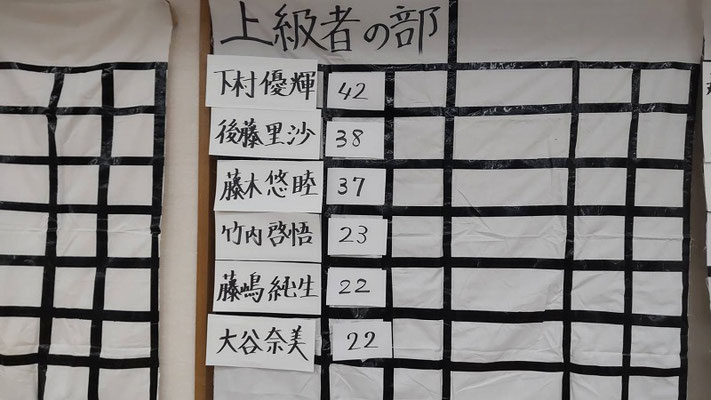 上級者の部
下村優輝 42
後藤里沙 38
藤木悠睦 37
竹内啓悟 23
藤嶋純生 22
大谷奈美 22